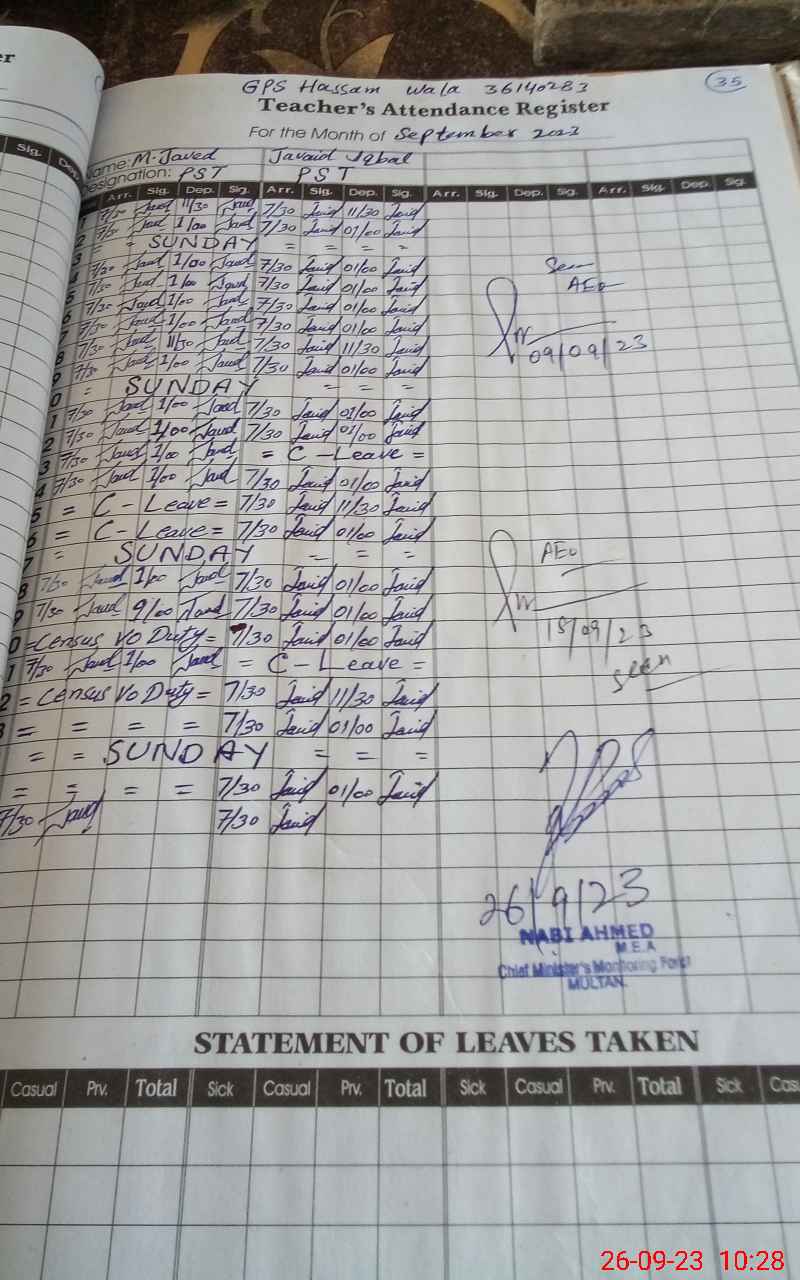 er
35
GPS Hassam wala 36140283
Teacher's Attendance Register
For the Month of September 2023
Sig. Dep.
Name: M. Javed Javaid Iqbal
Designation: PST PST
Arr. Sig. Dep. Sig. Arr. Sig. Dep. Sig. Arr. Sig. Dep. Sig. Arr. Sig. Dep. Sig.
7/30 Javed 11/30 Javed 7/30 Javid 11/30 Javid
2 7/30 Javed 1/00 Javed 7/30 Javid 01/00 Javid
3 = SUNDAY = = = =
4 7/30 Javed 1/00 Javed 7/30 Javid 01/00 Javid
5 7/30 Javed 1/00 Javed 7/30 Javid 01/00 Javid
6 7/30 Javed 1/00 Javed 7/30 Javid 01/00 Javid
7 7/30 Javed 1/00 Javed 7/30 Javid 01/00 Javid
8 7/30 Javed 11/30 Javed 7/30 Javid 11/30 Javid
9 7/30 Javed 1/00 Javed 7/30 Javid 01/00 Javid
0 = SUNDAY = = =
1 7/30 Javed 1/00 Javed 7/30 Javid 01/00 Javid
2 7/30 Javed 1/00 Javed 7/30 Javid 01/00 Javid
3 7/30 Javed 1/00 Javed = C-Leave =
4 7/30 Javed 1/00 Javed 7/30 Javid 01/00 Javid
5 = C-Leave = 7/30 Javid 11/30 Javid
6 = C-Leave = 7/30 Javid 01/00 Javid
7 = SUNDAY = = =
8 7/30 Javed 1/00 Javed 7/30 Javid 01/00 Javid
9 7/30 Javed 9/00 Javed 7/30 Javid 01/00 Javid
0 = Census VO Duty = 7/30 Javid 01/00 Javid
1 7/30 Javed 1/00 Javed = C-Leave =
2 = Census VO Duty = 7/30 Javid 11/30 Javid
3 = = = = 7/30 Javid 01/00 Javid
= = SUNDAY = = =
= = = = 7/30 Javid 01/00 Javid
7/30 Javed 7/30 Javid
Seen
AEO
09/09/23
AEO
18/09/23
seen
26/9/23
NABI AHMED
M.E.A
Chief Minister's Monitoring Force
MULTAN.
STATEMENT OF LEAVES TAKEN
Casual Prv. Total Sick Casual Prv. Total Sick Casual Prv. Total Sick Cas
26-09-23 10:28